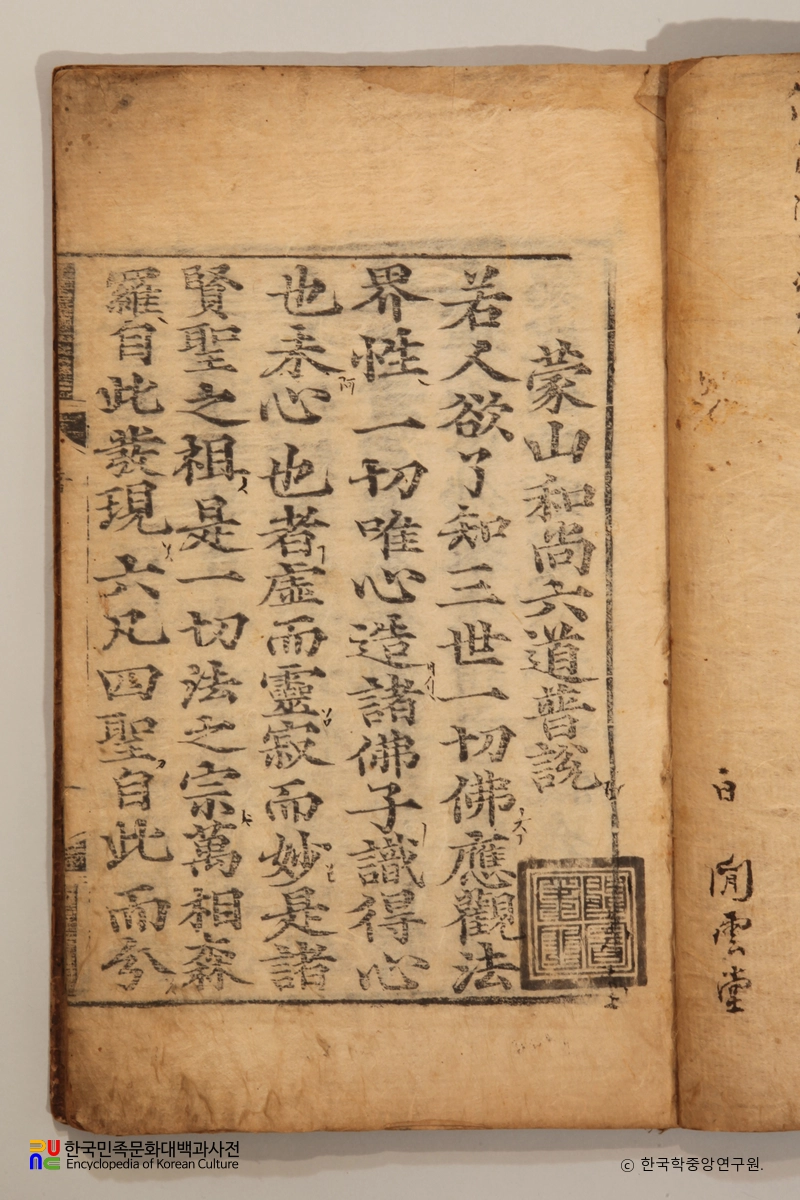 蒙山和尚六道普說
若人欲了知三世一切佛應觀法
界性一切唯心造諸佛子識得心
也未心也者虛而靈寂而妙是諸
賢聖之祖是一切法之宗萬相森
羅自此發現六凡四聖自此而分
白 閑雲堂
한국민족문화대백과사전
Encyclopedia of Korean Culture
ⓒ 한국학중앙연구원.